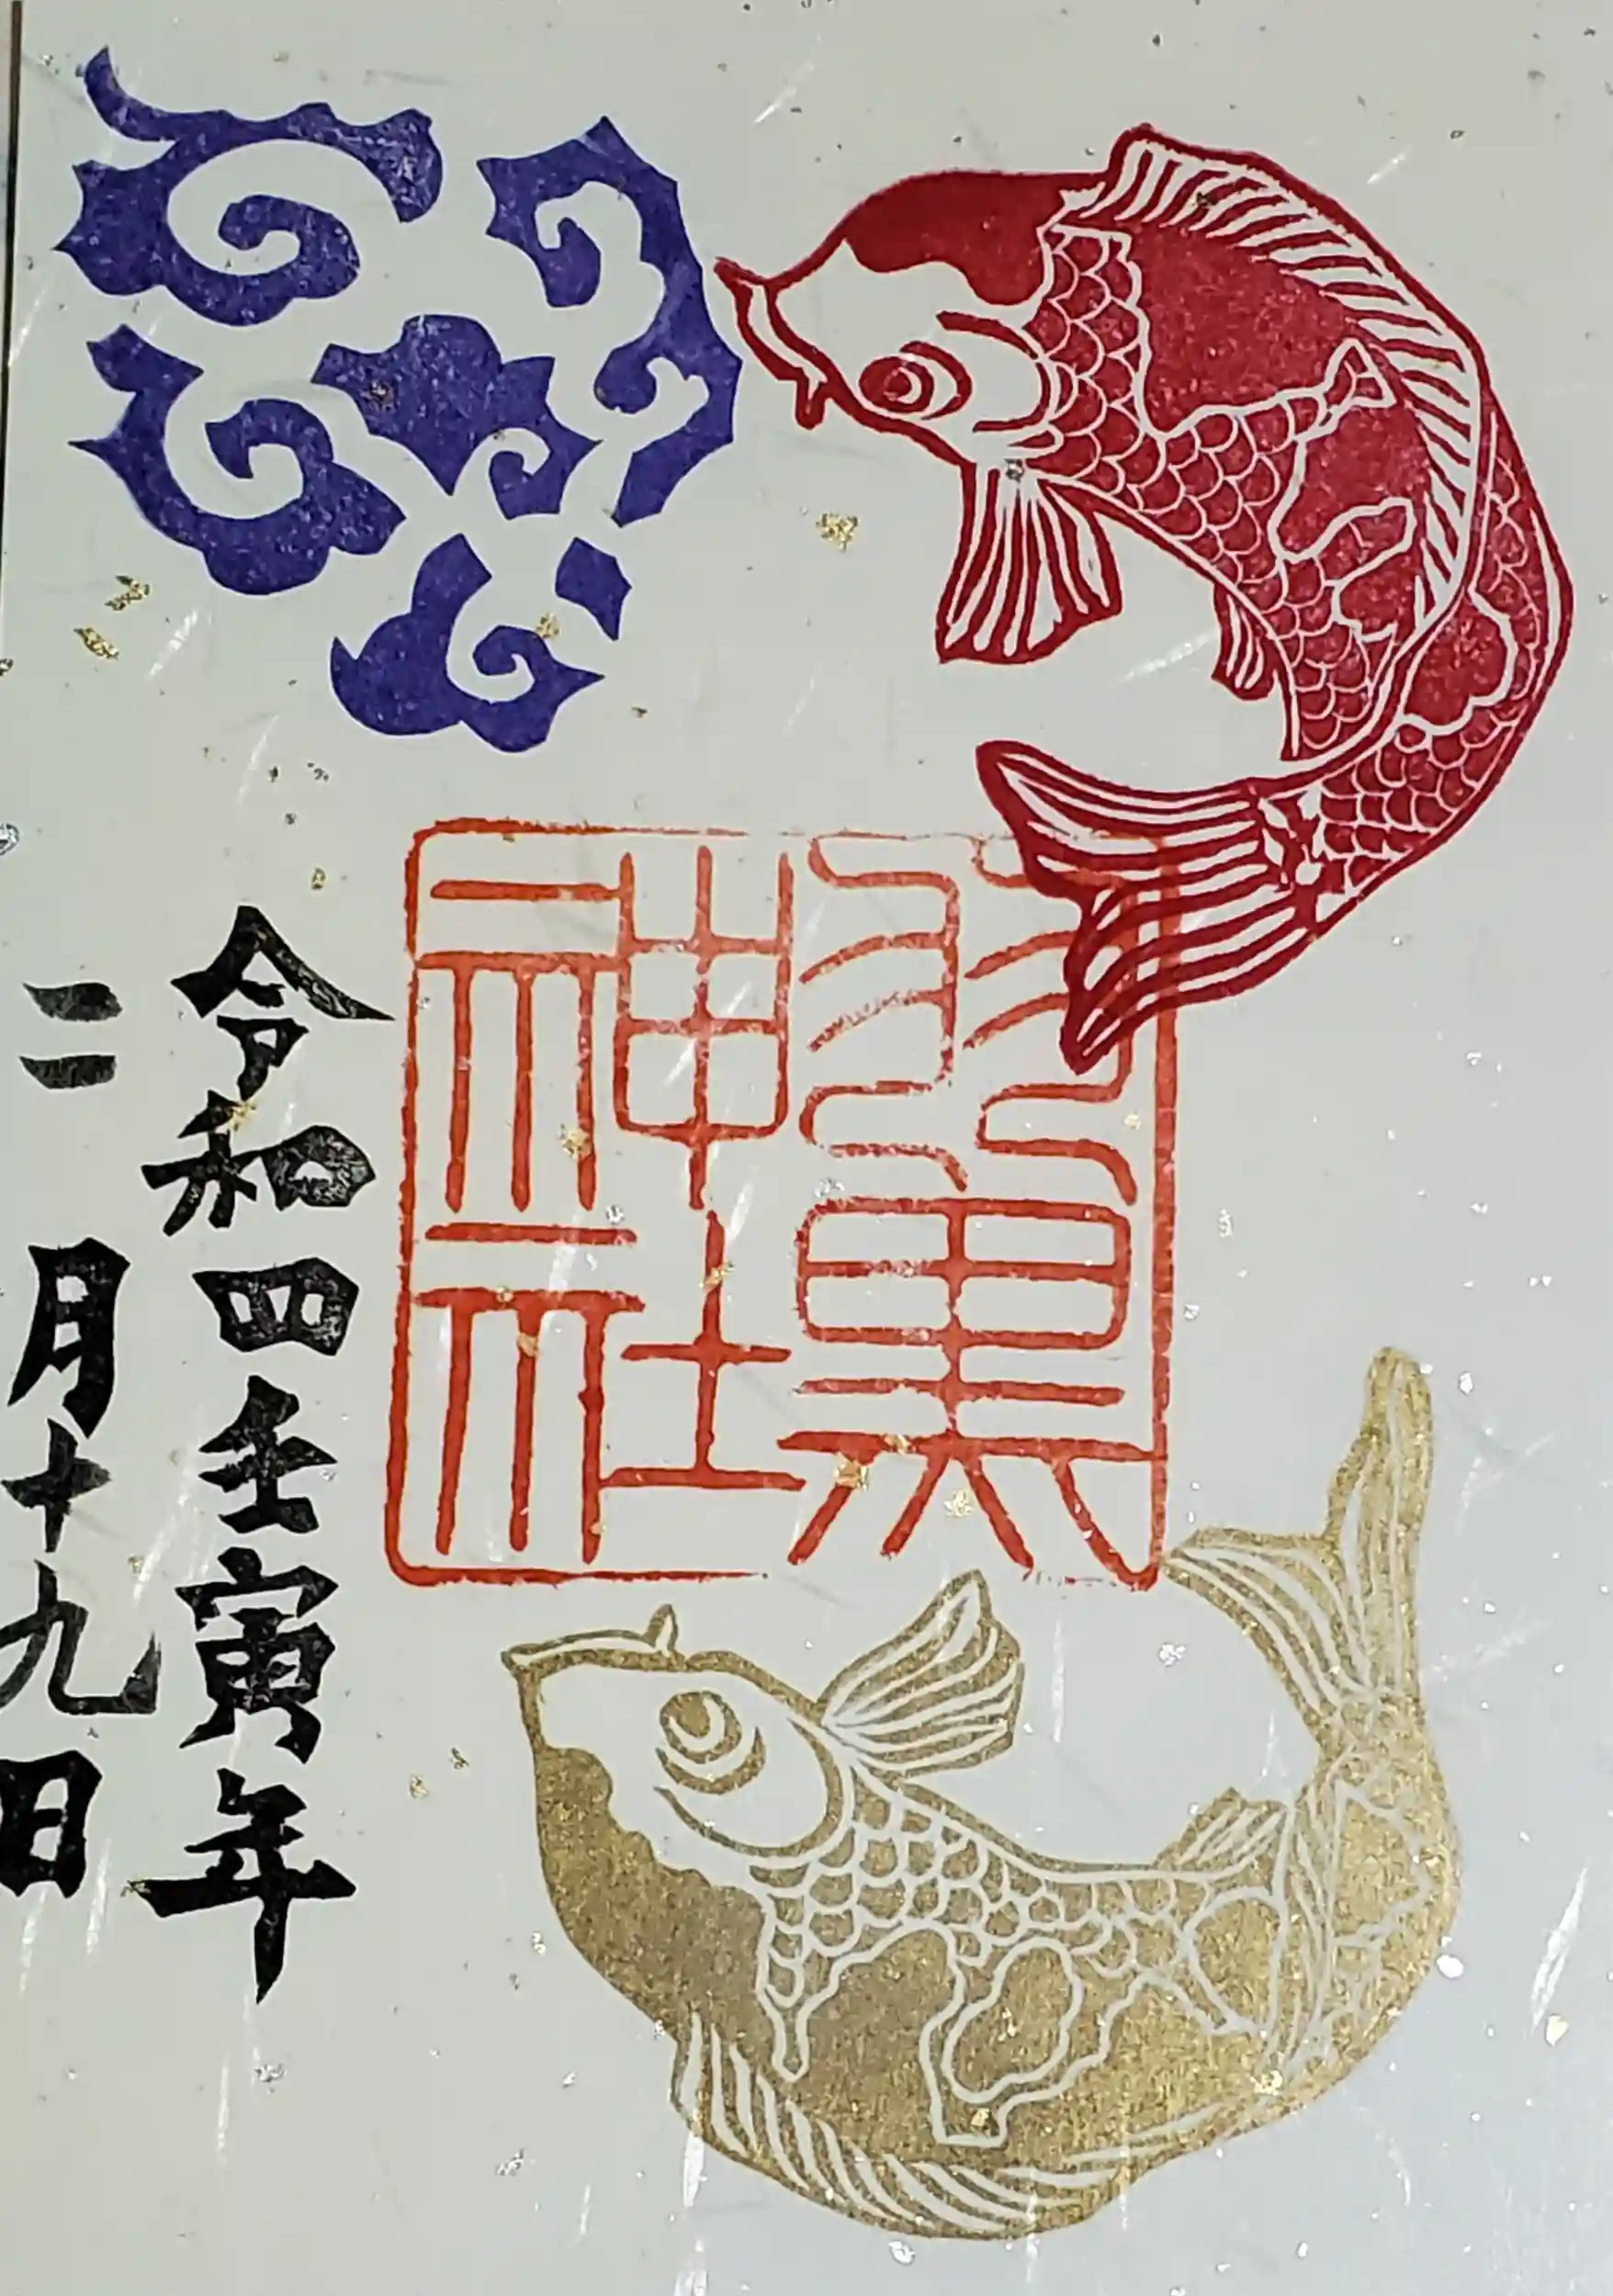 羽黒
神社
令和四壬寅年
二月十九日